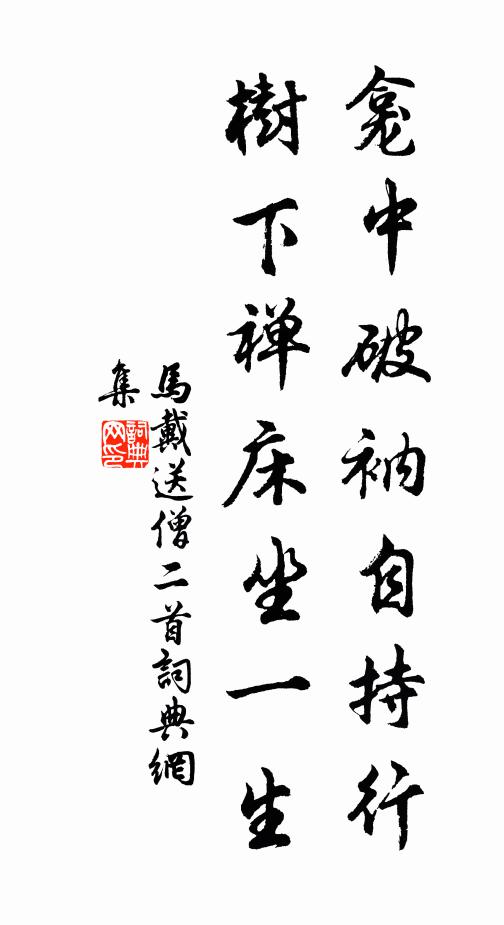 龕中破衲自持行
樹下禅床坐一生
馬戴送僧二首詞典網
集
詞典
网印